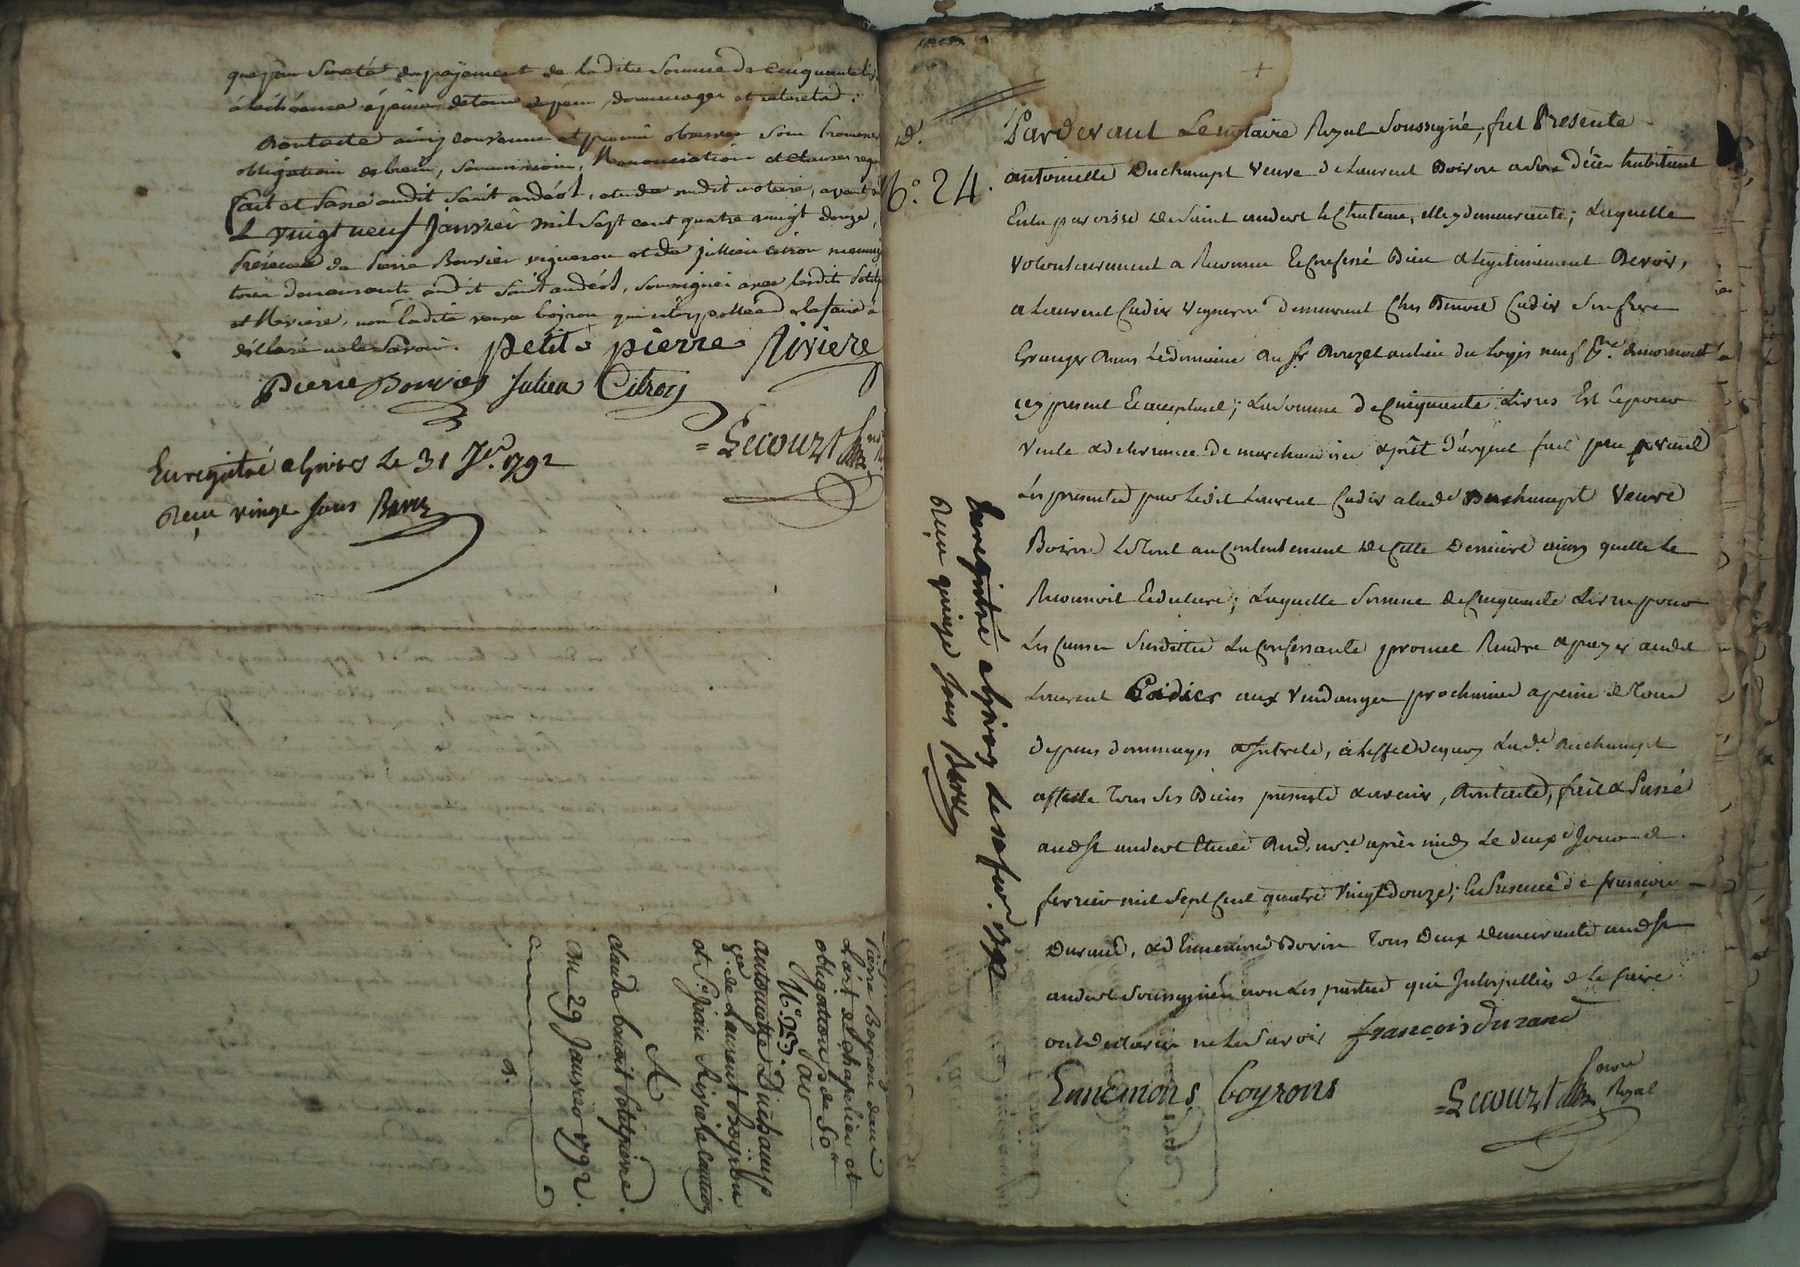 que pour sureté du payement de ladite somme de cinquante
à léchéance à peine de tous depens, dommages et interets :
Dontacte ainsy convenu et promis observer sous
obligation de biens, soumission, Renonciation et clauses
fait et passé audit saint andéol, etude dudit notaire, avant
Le vingt neuf Janvier mil sept cent quatre vingt douze,
présence de pierre Bouvier vigneron et de jullien citron
tous demeurants audit saint andéol, soussignés avec lesdits
et Riviere, non ladite veuve boyron qui interpellée de le faire à
déclaré ne le savoir. petit pierre Riviere
Pierre Bouvier Julien Citron
= Lecourt
Enregistré a Givors Le 31 Jer. 1792
Reçu vingt sous
Pierre Boyron
obligation de 50#
N.° 23. Par
antoinette Duchamp
ve. de Laurent boyron
et Sr. Jean Riviere Caution
A
claude benoit petitpierre.
Du 29 Janvier 1792.
N.° 24.
Pardevant Le notaire Royal Soussigné, fut Presente
antoinette Duchampt veuve de Laurent Boiron habitant
En la paroisse de Saint andeol le Chateau, elle y demeurante; Laquelle
volontairement a Reconnu Et Confessé Bien & legitimement Devoir,
a Laurent Cadier vigneron demeurant Chés Benoit Cadier Son frere
Granger dans Le domaine du Sr. Rouzet au lieu du Logis neuf
icy present Et acceptant; La Somme de Cinquante Livres Et ce pour
vente & delivrance de marchandise & prêt d'argent fait avant
Les presentes par Ledit Laurent Cadier a lade. Duchampt veuve
Boiron Le tout au Contentement de Cette Derniere ainsy quelle Le
Reconnoit Et declare; Laquelle Somme de Cinquante Livres pour
Les Causes Susdittes La Confessante promet Rendre & payer audit
Laurent Cadier aux vendanges prochaines a peine de Tous
depens dommages & Interets, à Leffet de quoy Lade. Duchampt
affecte Tous Ses Biens presents & avenir, Dontacte, fait & Passé
aud St andeol Etude dud. nore. après midy Le deuxe. Jour de
fevrier mil Sept Cent quatre vingt douze; En Presence de francois
Durand, & d'Ennemond Boiron Tous Deux Demeurants aud St
andeol Soussignés non Les parties qui Interpellées de le faire
ont declarés ne Le Savoir françois durand
Ennemons boyrons
= Lecourt nore Royal
Enregistré a Givors le six fer. 1792
Reçu quinze sous